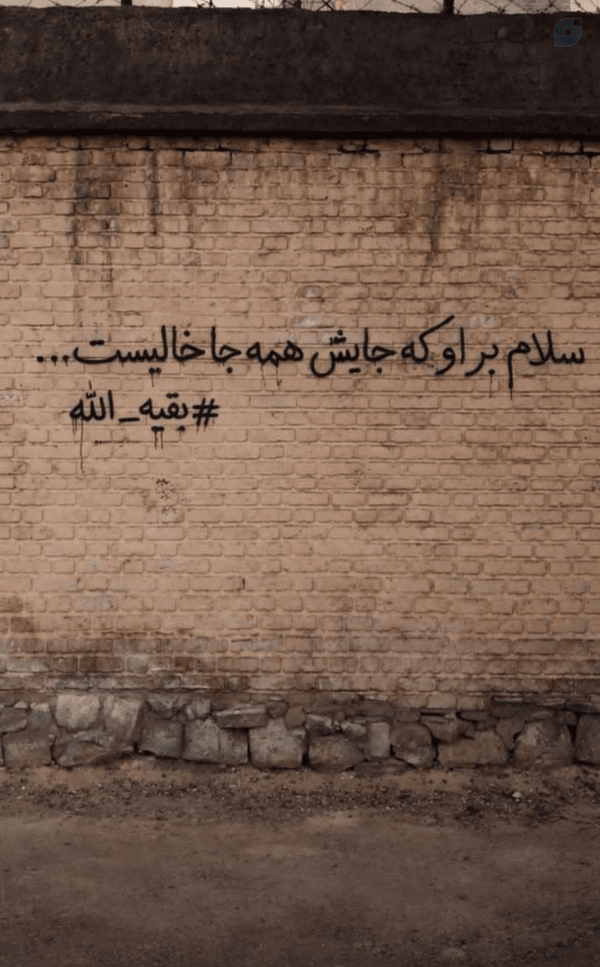 سلام بر او که جایش همه جا خالیست...
#بقیه_الله